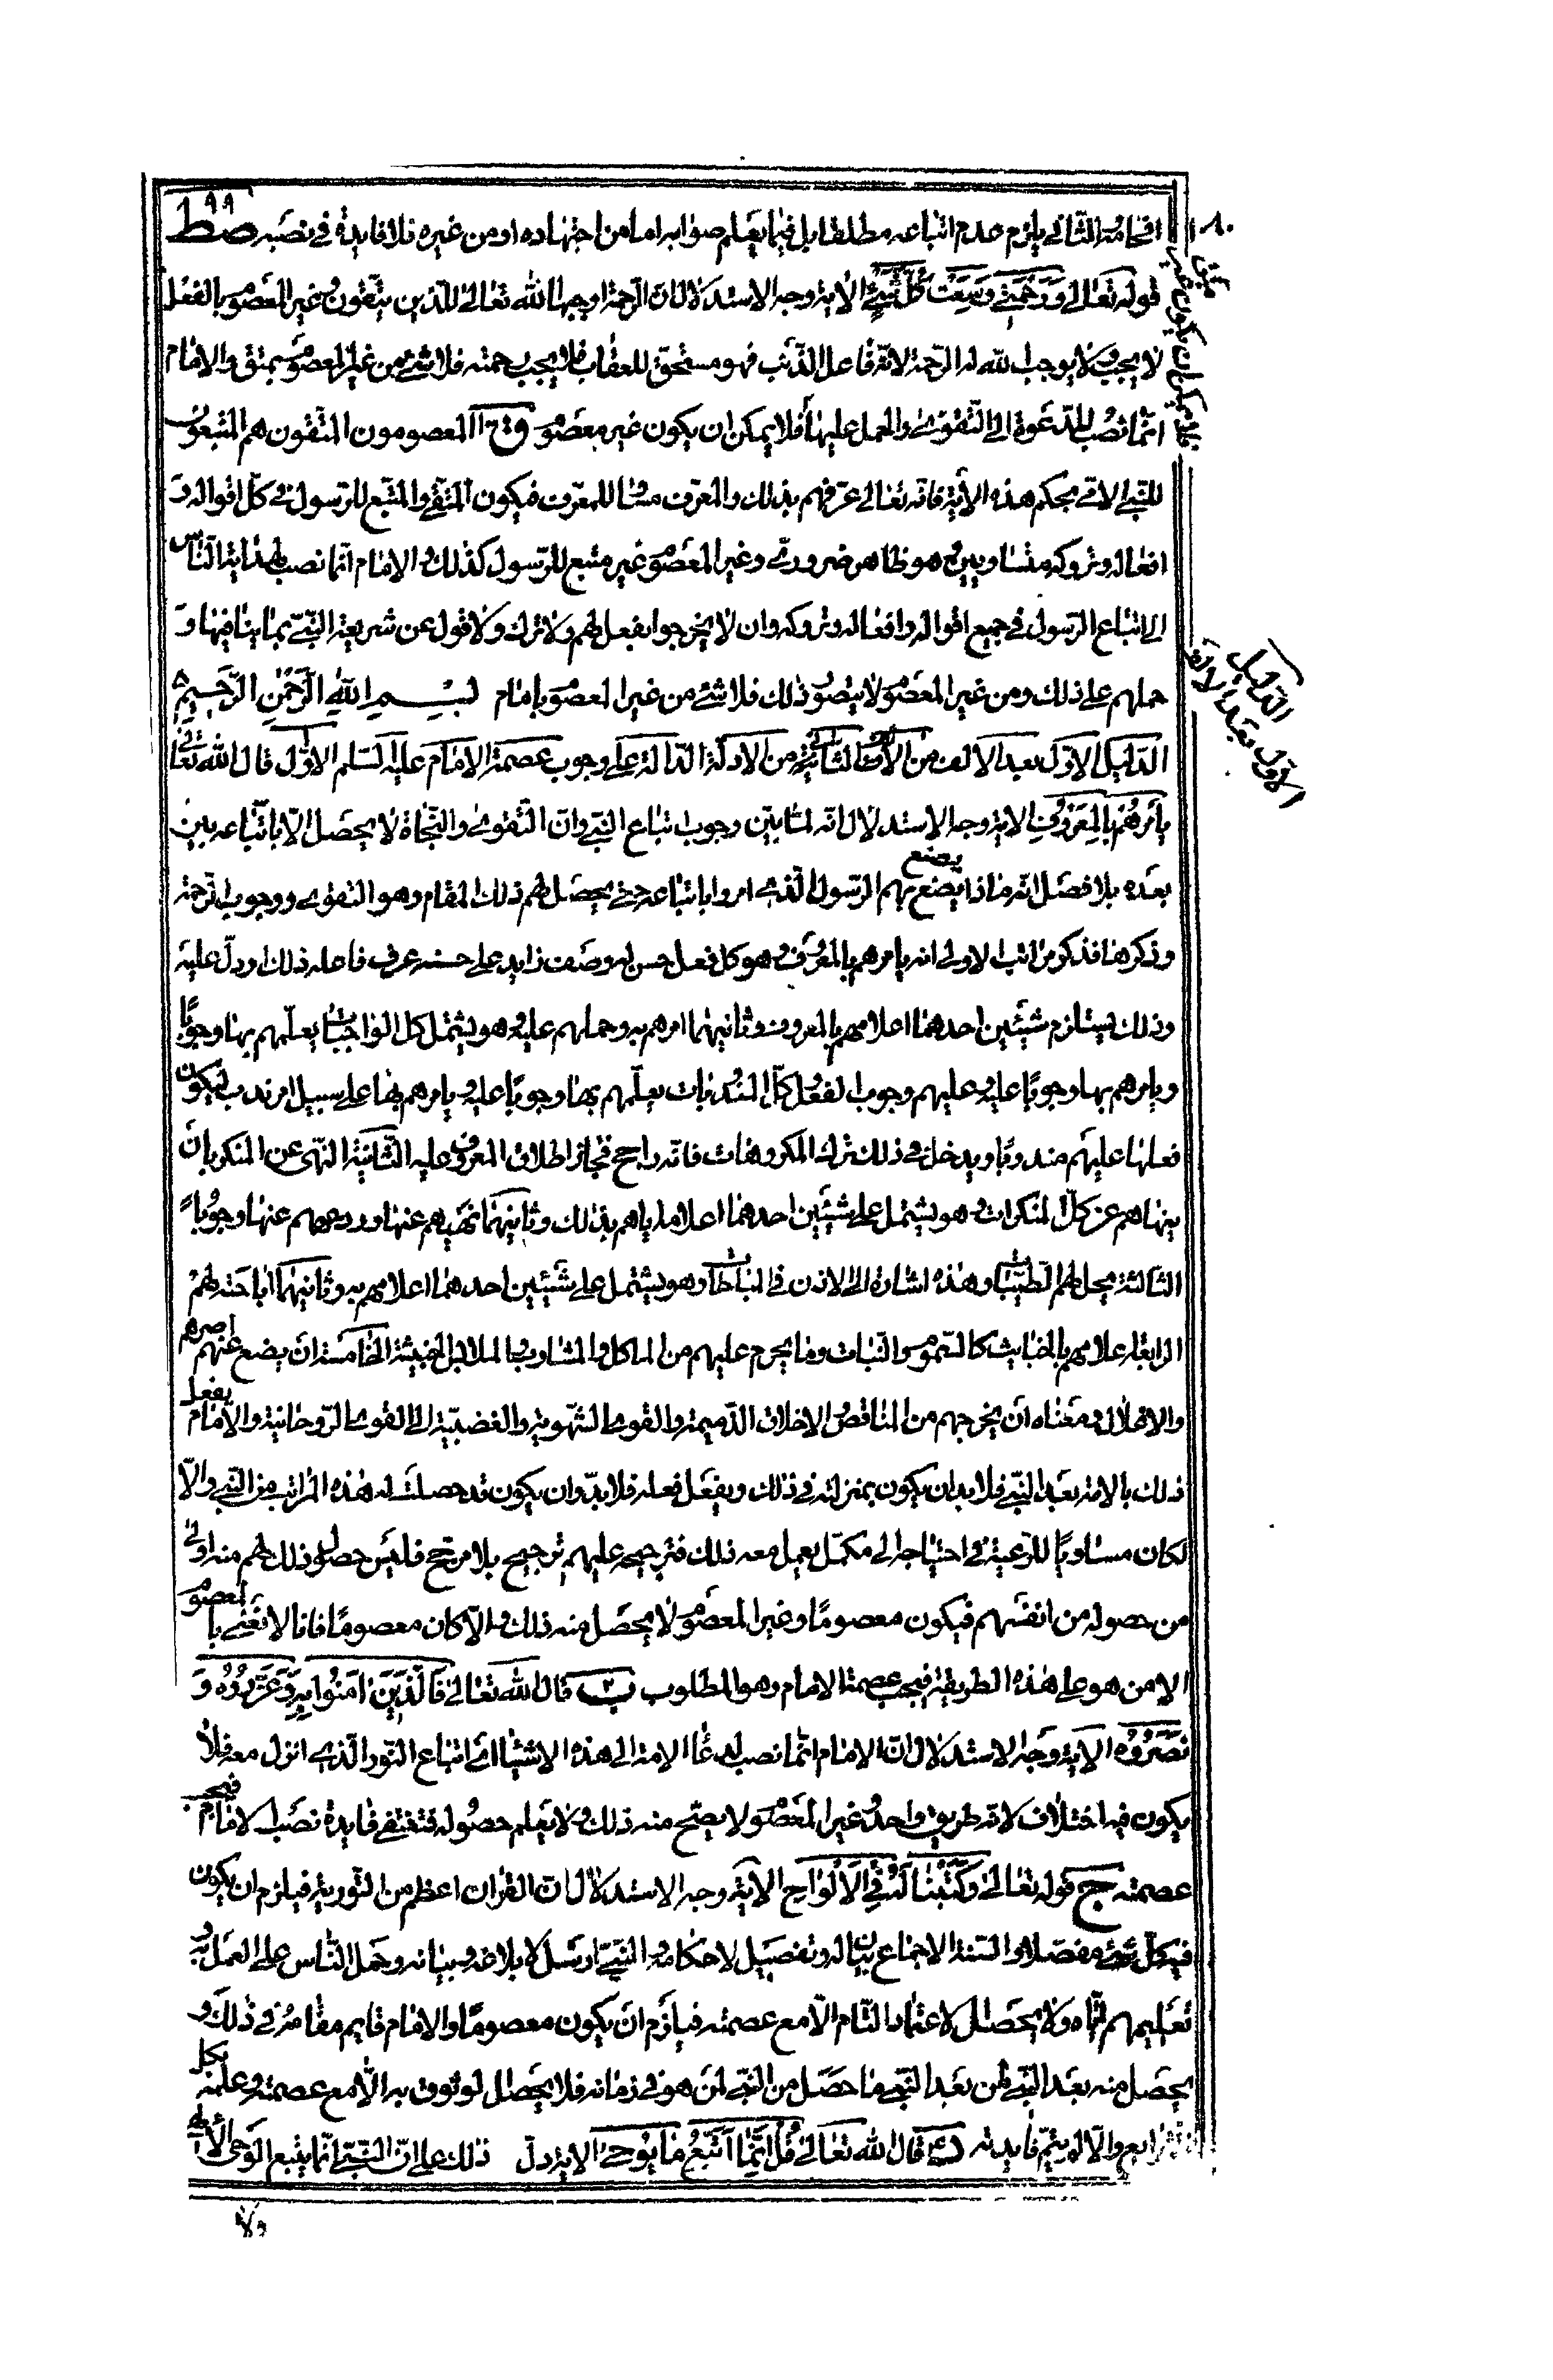 افحامه الثاني يلزم عدم اتباعه مطلقا بل فيما يعلم صوابه اما من اجتهاده او من غيره فلا فايدة في نصبه صط ٩٩
قوله تعالى ورحمتي وسعت كل شيء الاية وجه الاستدلال ان الرحمة اوجبها الله تعالى للذين يتقون وغير المعصوم بالفعل
لا يجب ولا يوجب الله له الرحمة لانه فاعل الذنب فهو مستحق للعقاب فلا يجب رحمته فلا شئ من غير المعصوم بمتق والامام
انما نصب للدعوة الى التقوى والحمل عليها فلا يمكن ان يكون غير معصوم المعصومون المتقون هم المتبعون
للنبي الامي بحكم هذه الاية فانه تعالى عرفهم بذلك والمعرف مساو للمعرف فيكون المتقي والمتبع للرسول في كل اقواله و
افعاله وتروكه متساويين وهو ظاهر ضروري وغير المعصوم غير متبع للرسول كذلك والامام انما نصب لهداية الناس
الى اتباع الرسول في جميع اقواله وافعاله وتروكه وان لا يخرجوا بفعل لهم ولا ترك ولا قول عن شريعة النبي بما ينافيها و
حملهم على ذلك ومن غير المعصوم لا يتصور ذلك فلا شئ من غير المعصوم بامام بسم الله الرحمن الرحيم
الدليل الاول بعد الالف من الالف الثانية من الادلة الدالة على وجوب عصمة الامام عليه السلم الاول قال الله تعالى
يامرهم بالمعروف الاية وجه الاستدلال انه لما بين وجوب اتباع النبي وان التقوى والنجاة لا يحصل الا باتباعه بين
بعده بلا فصل انه ماذا يصنع بهم الرسول الذي امروا باتباعه حتى يحصل لهم ذلك المقام وهو التقوى ووجوب الرحمة
وذكرها فذكر مراتب الاولى انه يامرهم بالمعروف وهو كل فعل حسن له وصف زايد على حسنه عرف فاعله ذلك او دل عليه
وذلك يستلزم شيئين احدهما اعلامهم بالمعروف وثانيهما امرهم به وحملهم عليه وهو يشتمل كل الواجبات يعلمهم بها وجوبا
ويامرهم بها وجوبا عليه وعليهم وجوب الفعل وكل المندوبات يعلمهم بها وجوبا عليه ويامرهم بها على سبيل امر ندب ليكون
فعلها عليهم مندوبا ويدخل في ذلك ترك المكروهات فانه راجح فجاز اطلاق المعروف عليه الثانية النهى عن المنكر بان
ينهاهم عن كل المنكرات وهو يشتمل على شيئين احدهما اعلامه اياهم بذلك وثانيهما نهيهم عنها وردعهم عنها وجوبا
الثالثة يحل لهم الطيبات وهذه اشارة الى الاذن في المباحات وهو يشتمل على شيئين احدهما اعلامهم به وثانيهما اباحته لهم
الرابعة اعلامهم بالخبايث كالسموم والنبات وما يحرم عليهم من الماكل والمشارب والملابس الخبيثة الخامسة ان يضع عنهم اصرهم
والاغلال ومعناه ان يخرجهم من المناقص والاخلاق الذميمة والقوى الشهوية والغضبية الى القوى الروحانية والامام يفعل
ذلك بالامة بعد النبي فلا بد ان يكون بمنزلته في ذلك ويفعل فعله فلا بد وان يكون قد حصلت له هذه المراتب من النبي والا
لكان مساويا للرعية في احتياجه الى مكمل يعمل معه ذلك فترجيحه عليهم ترجيح بلا مرجح فليس حصول ذلك لهم منه اولى
من حصوله من انفسهم فيكون معصوما وغير المعصوم لا يحصل منه ذلك والا كان معصوما فانا لا نعني بالمعصوم
الا من هو على هذه الطريقة فيجب عصمة الامام وهو المطلوب ب قال الله تعالى فالذين امنوا به وعزروه و
نصروه الاية وجه الاستدلال ان الامام انما نصب لدعاء الامة الى هذه الاشياء اي اتباع النور الذي انزل معه فلا
يكون فيه اختلاف لانه طريق واحد وغير المعصوم لا يصح منه ذلك ولا يعلم حصوله فتنتفي فايدة نصب الامام فيجب
عصمته ج قوله تعالى وكتبنا له في الالواح الاية وجه الاستدلال ان القران اعظم من التورية فيلزم ان يكون
فيه كل شئ مفصلا والسنة والاجماع بيان له وتفصيل لاحكامه والنبي ارسل لابلاغه وبيانه وحمل الناس على العمل به و
تعليمهم اياه ولا يحصل الاعتماد التام الا مع عصمته فيلزم ان يكون معصوما والامام قايم مقامه في ذلك و
يحصل منه بعد النبي لمن بعد النبي ما حصل من النبي لمن هو في زمانه فلا يحصل الوثوق به الا مع عصمته وعلمه بكل
الشرايع والا لم يتم فايدته د قال الله تعالى قل انما اتبع ما يوحى الاية دل ذلك على ان النبي انما يتبع الوحى الالهي
فلا يمكن ان يكون غير متق
الدليل
الاول بعد الالف